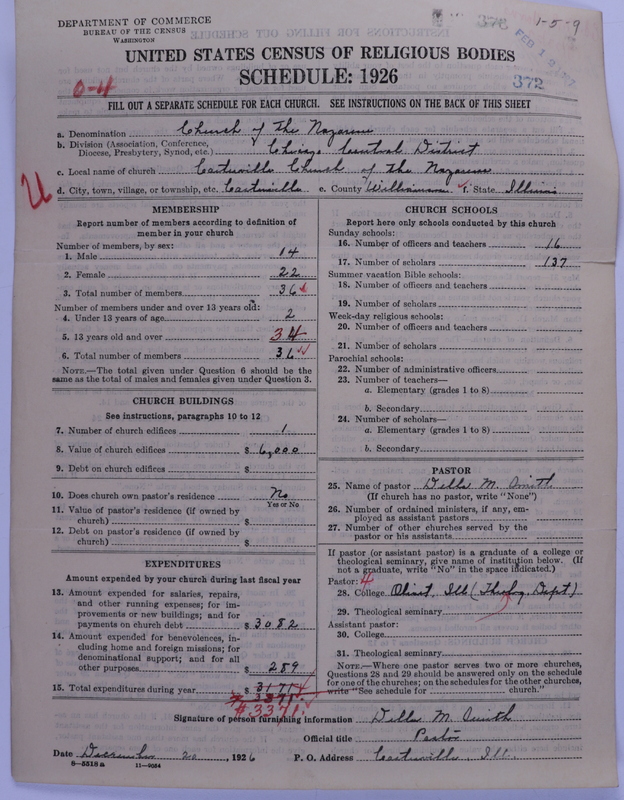 DEPARTMENT OF COMMERCE
BUREAU OF THE CENSUS
WASHINGTON
376
1-5-9
FEB 1 9 1927
UNITED STATES CENSUS OF RELIGIOUS BODIES
SCHEDULE: 1926
0-4
372
FILL OUT A SEPARATE SCHEDULE FOR EACH CHURCH. SEE INSTRUCTIONS ON THE BACK OF THIS SHEET
a. Denomination Church of the Nazarene
b. Division (Association, Conference, Diocese, Presbytery, Synod, etc.) Chicago Central District
c. Local name of church Carterville Church of the Nazarene
d. City, town, village, or township, etc. Carterville e. County Williamson f. State Illinois
U
MEMBERSHIP
Report number of members according to definition of member in your church
Number of members, by sex:
1. Male 14
2. Female 22
3. Total number of members 36
Number of members under and over 13 years old:
4. Under 13 years of age 2
5. 13 years old and over 34
6. Total number of members 36
NOTE.—The total given under Question 6 should be the
same as the total of males and females given under Question 3.
CHURCH BUILDINGS
See instructions, paragraphs 10 to 12
7. Number of church edifices 1
8. Value of church edifices $ 6,000
9. Debt on church edifices $
10. Does church own pastor's residence No
Yes or No
11. Value of pastor's residence (if owned by
church) $
12. Debt on pastor's residence (if owned by
church) $
EXPENDITURES
Amount expended by your church during last fiscal year
13. Amount expended for salaries, repairs,
and other running expenses; for im-
provements or new buildings; and for
payments on church debt $ 3082
14. Amount expended for benevolences, in-
cluding home and foreign missions; for
denominational support; and for all
other purposes $ 289
15. Total expenditures during year $ 3171
$3371
CHURCH SCHOOLS
Report here only schools conducted by this church
Sunday schools:
16. Number of officers and teachers 16
17. Number of scholars 137
Summer vacation Bible schools:
18. Number of officers and teachers
19. Number of scholars
Week-day religious schools:
20. Number of officers and teachers
21. Number of scholars
Parochial schools:
22. Number of administrative officers
23. Number of teachers—
a. Elementary (grades 1 to 8)
b. Secondary
24. Number of scholars—
a. Elementary (grades 1 to 8)
b. Secondary
PASTOR
25. Name of pastor Della M. Smith
(If church has no pastor, write "None")
26. Number of ordained ministers, if any, em-
ployed as assistant pastors
27. Number of other churches served by the
pastor or his assistants
If pastor (or assistant pastor) is a graduate of a college or
theological seminary, give name of institution below. (If
not a graduate, write "No" in the space indicated.)
Pastor: 4
28. College Olivet, Ill (Theolog. Dept)
29. Theological seminary
Assistant pastor:
30. College
31. Theological seminary
NOTE.—Where one pastor serves two or more churches,
Questions 28 and 29 should be answered only on the schedule
for one of the churches; on the schedules for the other churches,
write "See schedule for church."
Signature of person furnishing information Della M. Smith
Official title Pastor
Date December 20, 1926 P. O. Address Carterville, Ill.
8—5518 a 11—9054